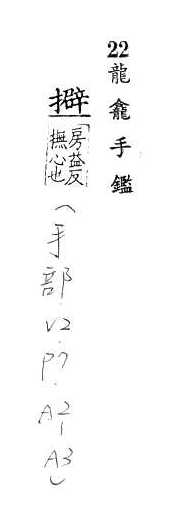 22 龍龕手鑑
擗「房益反撫心也(手部.V2.P7.A2,A3)